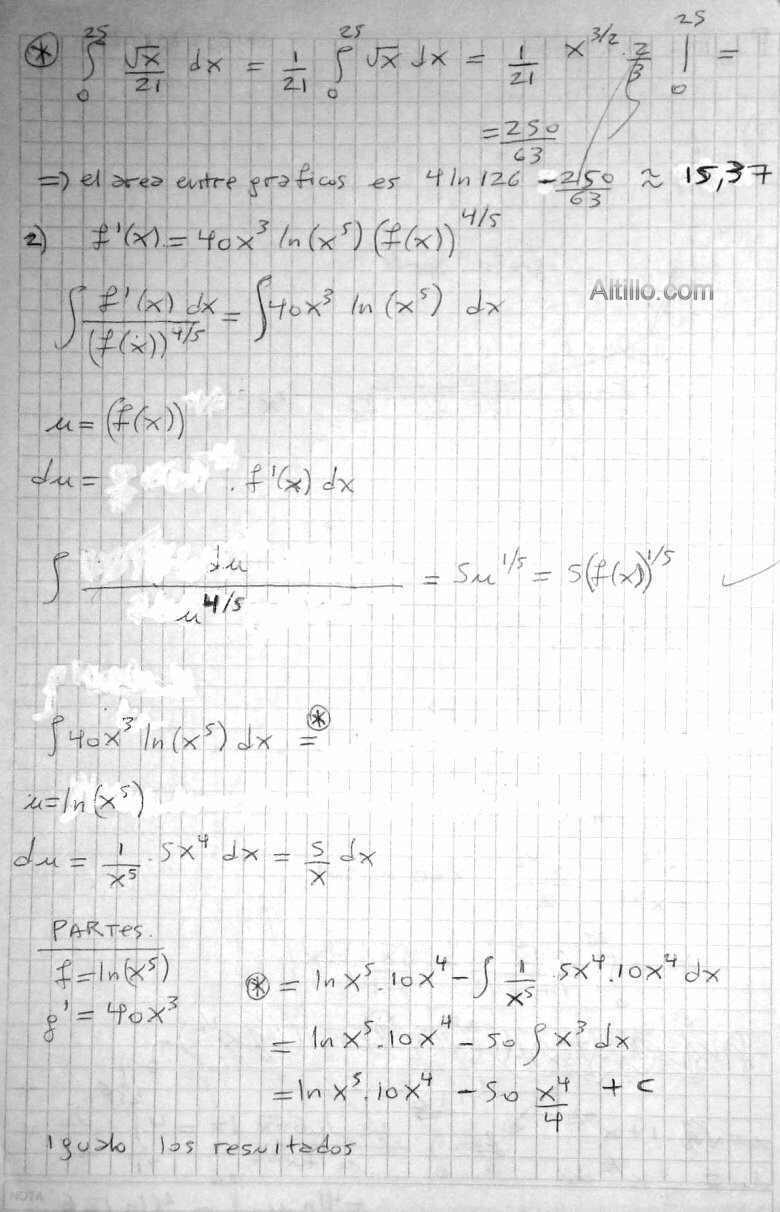 * ∫₀²⁵ √x/21 dx = 1/21 ∫₀²⁵ √x dx = 1/21 x^(3/2) · 2/3 |₀²⁵ =
= 250/63
=> el area entre graficos es 4 ln 126 - 250/63 ≈ 15,37
2) f'(x) = 40x³ ln(x⁵) (f(x))^(4/5)
Altillo.com
∫ f'(x) dx/(f(x))^(4/5) = ∫ 40x³ ln(x⁵) dx
u = (f(x))
du = . f'(x) dx
∫ du/u^(4/5) = 5u^(1/5) = 5(f(x))^(1/5)
∫ 40x³ ln(x⁵) dx = *
u = ln(x⁵)
du = 1/x⁵ · 5x⁴ dx = 5/x dx
PARTES.
f = ln(x⁵)
g' = 40x³
* = ln x⁵ . 10x⁴ - ∫ 1/x⁵ . 5x⁴ . 10x⁴ dx
= ln x⁵ . 10x⁴ - 50 ∫ x³ dx
= ln x⁵ . 10x⁴ - 50 x⁴/4 + c
igualo los resultados